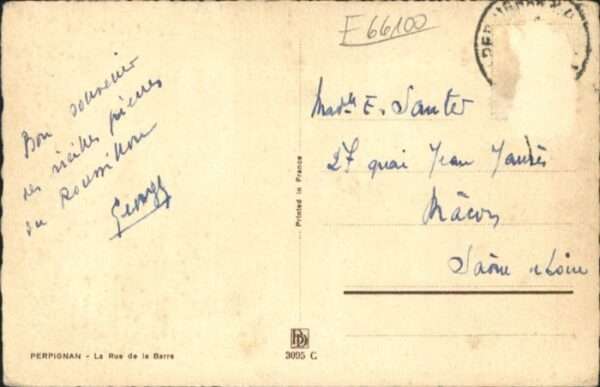 E66100
Bon souvenir
des vieilles pierres
du Roussillon
Georges
Madle E. Sauter
27 quai Jean Jaurès
Mâcon
Saône et Loire
Printed in France
PERPIGNAN - La Rue de la Barre
3095 C